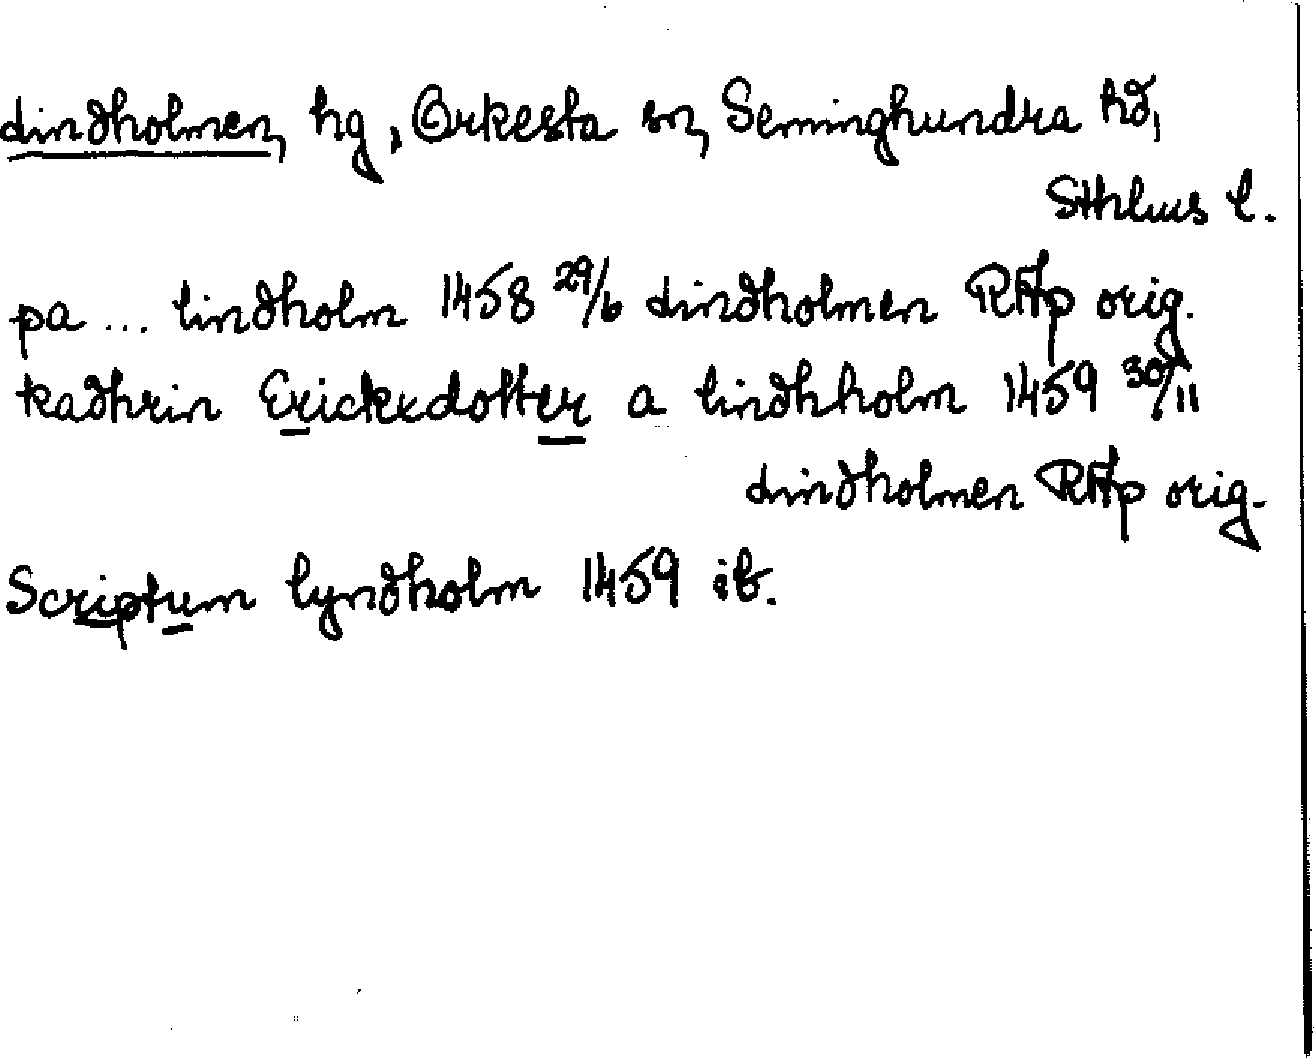 Lindholmen, hg, Orkesta sn, Seminghundra hd,
Sthlms l.
pa ... lindholm 1458 29/6 Lindholmen RAp orig.
kadhrin Erickxdotter a lindhholm 1459 30/11
Lindholmen RAp orig.
Scriptum lyndholm 1459 ib.